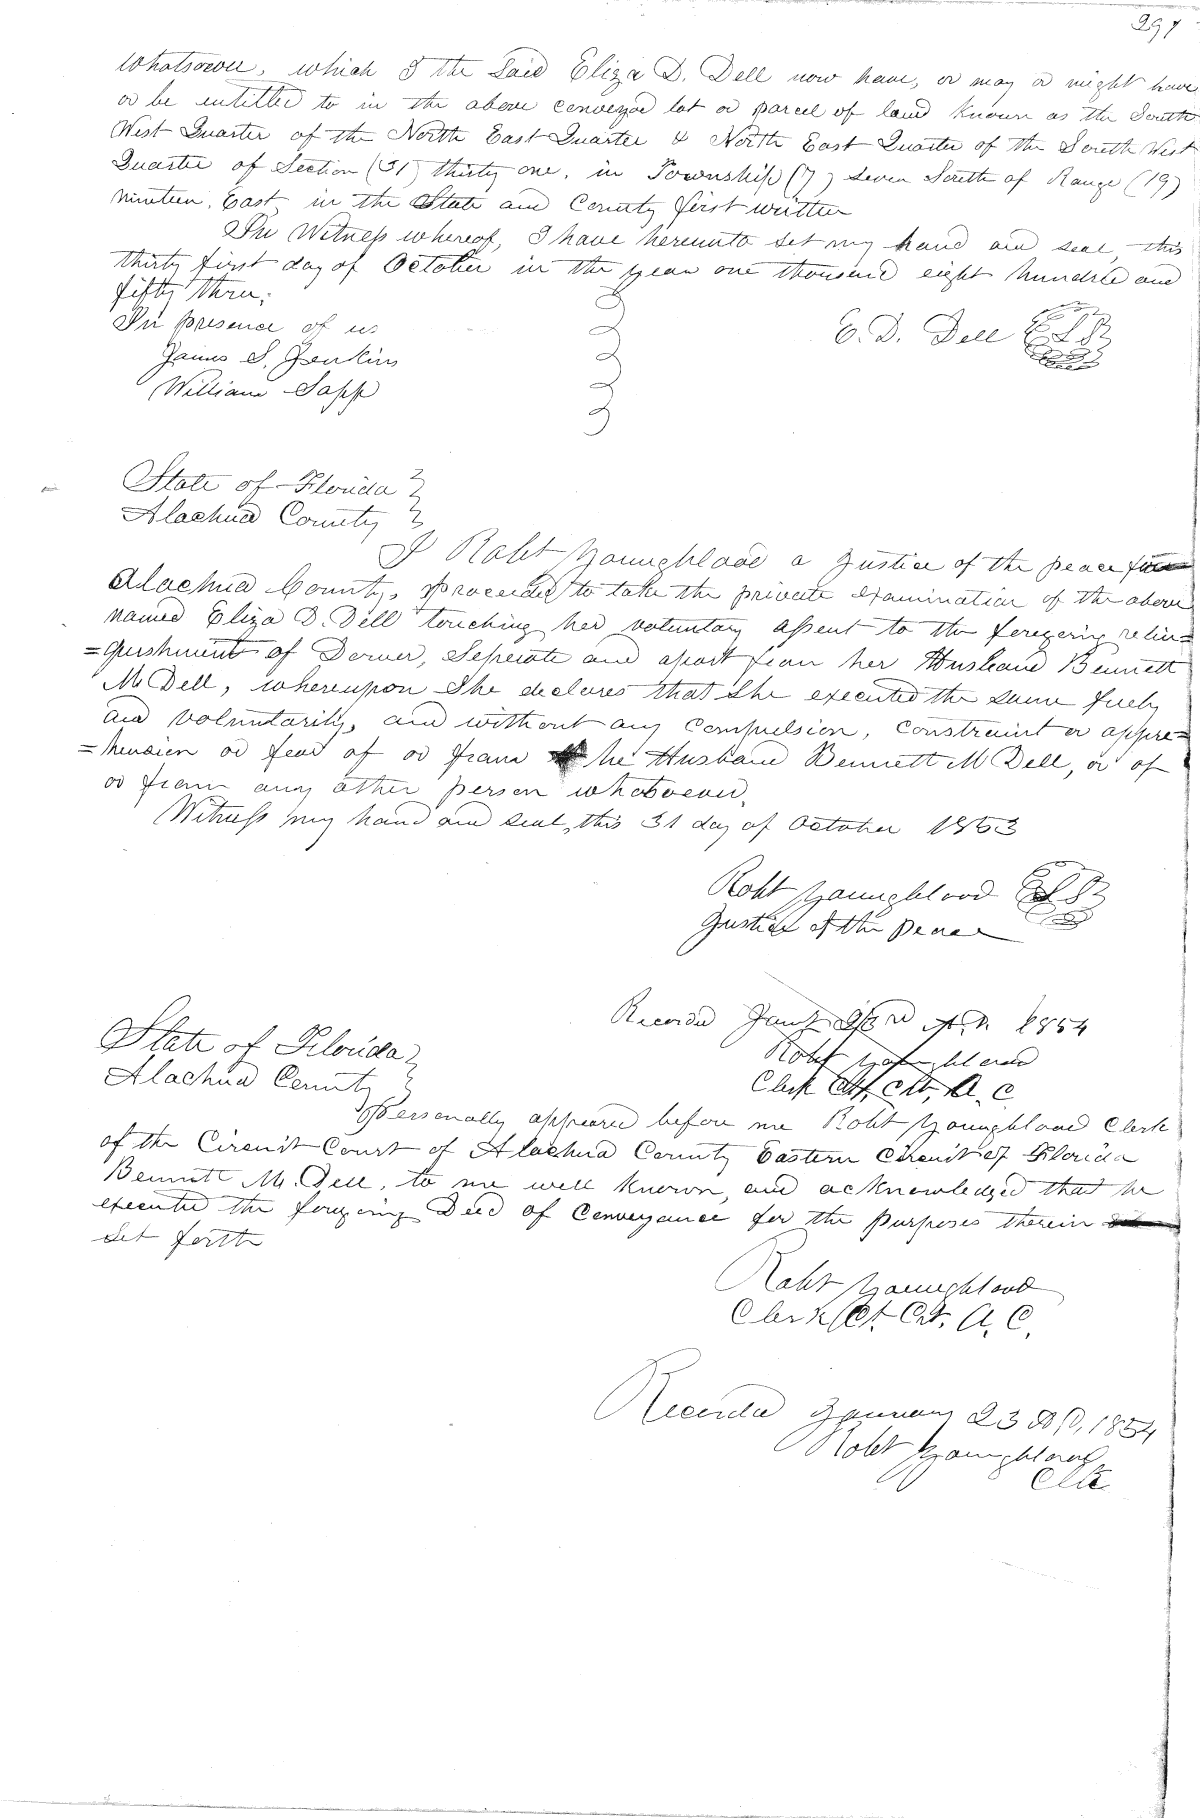 297
whatsoever, which I the said Eliza D. Dell now have, or may or might have
or be entitled to in the above conveyed lot or parcel of land known as the South
West Quarter of the North East Quarter & North East Quarter of the South West
Quarter of Section (31) thirty one, in Township (7) seven South of Range (19)
nineteen, East, in the State and County first written
In Witness whereof, I have hereunto set my hand and seal, this
thirty first day of October in the year one thousand eight hundred and
fifty three.
In presence of us
E. D. Dell LS
James S. Jenkins
William Sapp
State of Florida
Alachua County
I Robt Youngblood a Justice of the peace
Alachua County, proceeded to take the private examination of the above
named Eliza D. Dell touching her voluntary assent to the foregoing relin=
=quishment of Dower, Seperate and apart from her Husband Bennett
M Dell, whereupon She declares that She executed the same freely
and voluntarily, and without any compulsion, constraint or appre=
=hension or fear of or from he Husband Bennett M Dell, or of
or from any other person whatsoever.
Witness my hand and seal, this 31 day of October 1853
Robt Youngblood LS
Justice of the Peace
Recorded Jany 23rd A.D. 1854
Robt Youngblood
Clerk Ct. Crt. A. C
State of Florida
Alachua County
Personally appeared before me Robt Youngblood Clerk
of the Circuit Court of Alachua County Eastern Circuit of Florida
Bennett M. Dell, to me well known, and acknowledged that he
executed the foregoing Deed of Conveyance for the purposes therein
set forth
Robt Youngblood
Clerk Ct. Crt. A. C.
Recorded January 23 A.D. 1854
Robt Youngblood
Clk